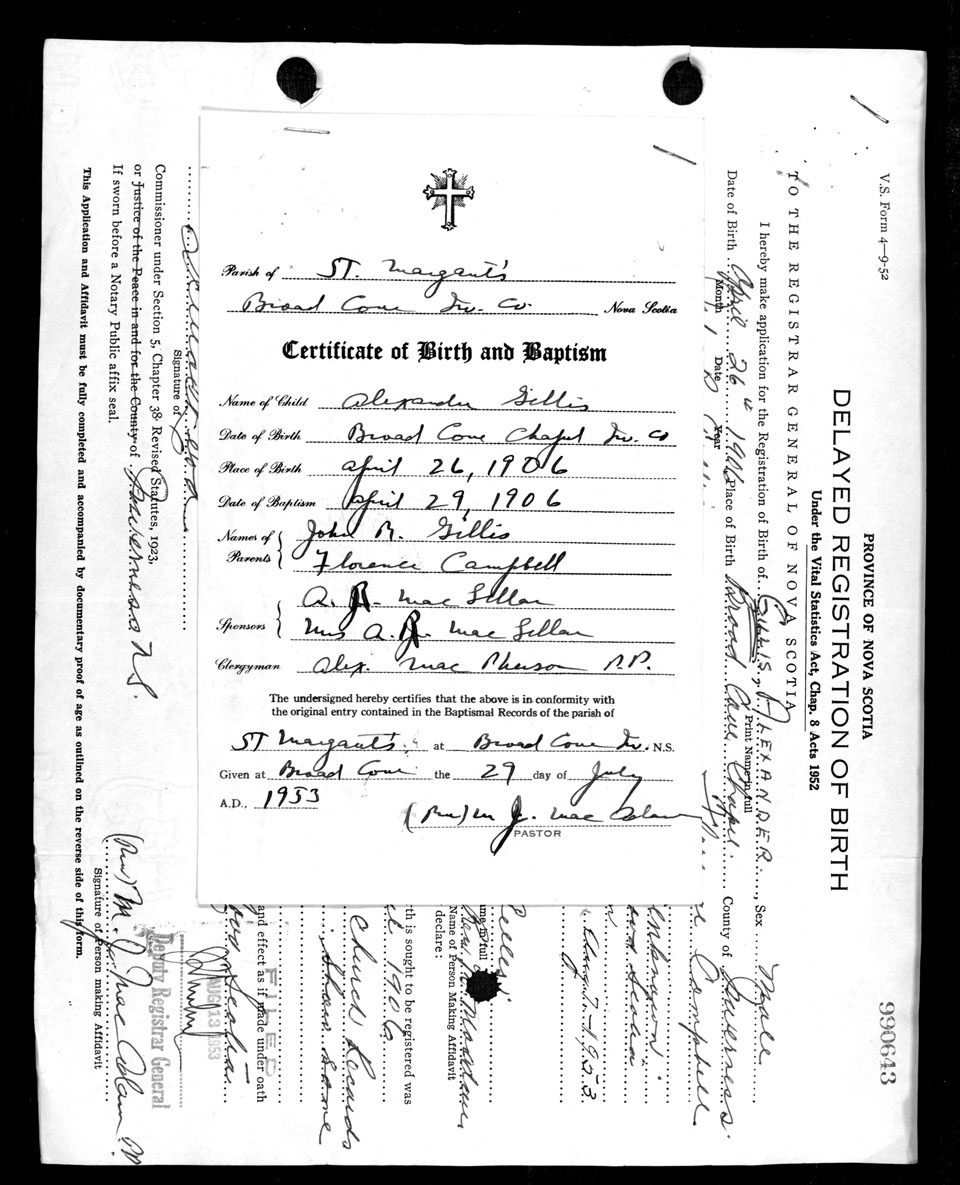 Parish of St. Margaret's
Broad Cove Inv. Co. Nova Scotia
Certificate of Birth and Baptism
Name of Child Alexander Gillis
Date of Birth Broad Cove Chapel Inv. Co
Place of Birth April 26, 1906
Date of Baptism April 29, 1906
Names of Parents John R. Gillis
Florence Campbell
Sponsors A. R. MacLellan
Mrs A. R. MacLellan
Clergyman Alex. MacPherson P.P.
The undersigned hereby certifies that the above is in conformity with
the original entry contained in the Baptismal Records of the parish of
St Margaret's at Broad Cove Inv. N.S.
Given at Broad Cove the 29 day of July
A.D., 1953
(Rev) M J. MacAdam
PASTOR
V.S. Form 4—9-52
990643
PROVINCE OF NOVA SCOTIA
DELAYED REGISTRATION OF BIRTH
Under the Vital Statistics Act, Chap. 8 Acts 1952
TO THE REGISTRAR GENERAL OF NOVA SCOTIA
I hereby make application for the Registration of Birth of GILLIS, ALEXANDER, Sex Male
Print Name in full
Date of Birth April 26 1906 Place of Birth Broad Cove Chapel County of Inverness
Month Date Year
Campbell
Unknown
Scotia
1953
Name in full
Rev. M. J. MacAdam
Name of Person Making Affidavit
declare:
rth is sought to be registered was
1906
Church Records
Show same
and effect as if made under oath
Scotia
FILED
AUG 13 1953
Deputy Registrar General
Signature of
Commissioner under Section 5, Chapter 38 Revised Statutes, 1923,
or Justice of the Peace in and for the County of Inverness N.S.
If sworn before a Notary Public affix seal.
(Rev) M. J. MacAdam P.
Signature of Person making Affidavit
This Application and Affidavit must be fully completed and accompanied by documentary proof of age as outlined on the reverse side of this form.